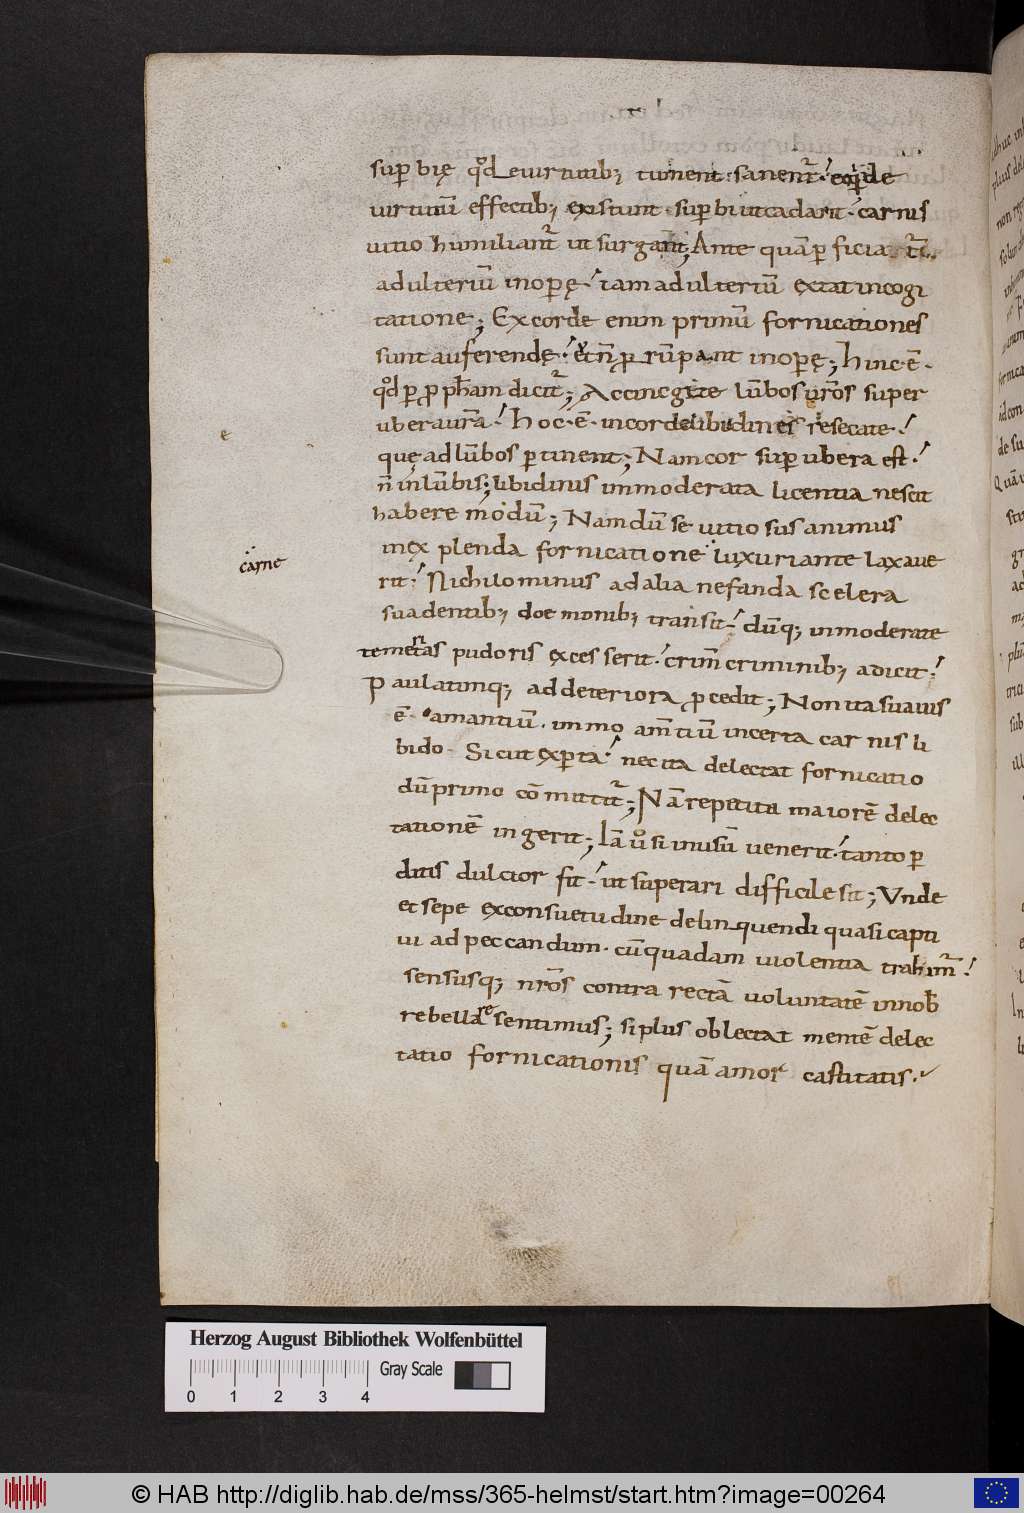 sup̄bię qd̊ e uirtutib; tument· sanent᷑· et q̊de
uirtutū effectib; existunt· sup̄biut cadant· carnis
uitio humiliant᷑ ut surgant; Ante quā p̄ficiat᷑
adulteriū inop̄ę· iam adulteriū extat in cogi
tatione; Ex corde enim primū fornicationes
sunt auferendę· et n̄ p̄rūpant in op̄ę; hinc ē·
qd̊ p̄ pph̄am dicit᷑; Accingite lūbos ur̄os super
ubera ur̄a· hoc· ē· in corde libidines resecate·
quę ad lūbos p̄tinent; Nam cor super ubera est·
n̄ in lūbis; libidinis inmoderata licentia nescit
habere modū; Nam dū se uitiosus animus
in explenda fornicatione luxuriante laxaue
rit· Nichilominus ad alia nefanda scelera
suadentib; doemonib; transit· dūq; inmoderate
temeritas pudoris excesserit· crim̄ criminib; adicit·
Paulatimq; ad deteriora p̄cedit; Non ita suauis
ē· amantiū· immo am̄tiū incerta carnis li
bido· Sicut exp̄ta· nec ita delectat fornicatio
dū primo cōmittit᷑; Nā repetita maiorē delec
tationē ingerit; Iā ů si in usū uenerit· tanto p̄
ditis dulcior fit· ut superari difficile sit; Vnde
et sepe ex consuetudine delinquendi quasi capti
ui ad peccandum· cū quadam uiolentia trahim᷑·
sensusq; nr̄os contra rectā uoluntatē in nob̄
rebellare sentimus; si plus oblectat mentē delec
tatio fornicationis quā amor castitatis·
carne
Herzog August Bibliothek Wolfenbüttel
Gray Scale
0 1 2 3 4
© HAB http://diglib.hab.de/mss/365-helmst/start.htm?image=00264